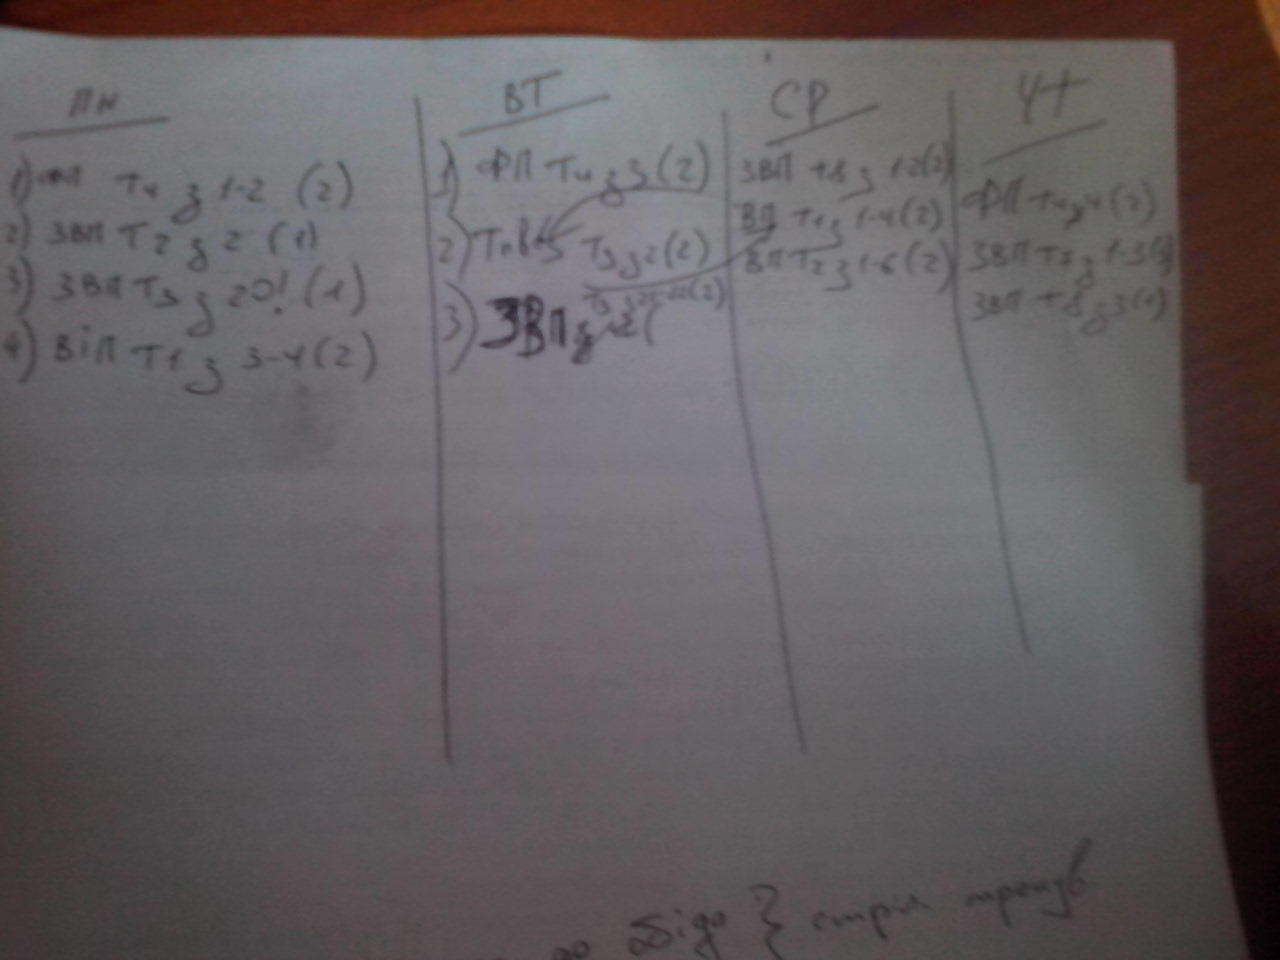 ПН
1) ФП Т4 з 1-2 (2)
2) ЗВП Т2 з 2 (1)
3) ЗВП Т3 з 20! (1)
4) ВіП Т1 з 3-4 (2)
ВТ
1) ФП Т4 з 3 (2)
2) Т3 з 2 (2)
3) ЗВП з 2 (
СР
ЗВП Т8 з 1-2 (2)
ВП Т1 з 1-4 (2)
ВП Т2 з 1-6 (2)
ЧТ
ФП Т4 з 4 (2)
ЗВП Т2 з 1-3
ЗВП Т8 з 3 (1)
до обіда }